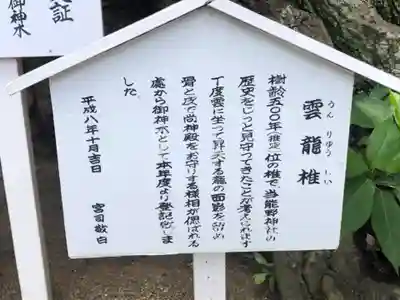 雲龍椎
うん りゅう しい
樹齢五〇〇年(推定)位の椎で、当熊野神社の
歴史をじっと見守ってきたことが考えられます
丁度雲に坐って昇天する龍の面影を留め
骨と皮で尚神殿をお守りする様相が偲ばれる
処から御神木として本年度より登記致しま
した
平成八年十月吉日
宮司敬白
証
御神水